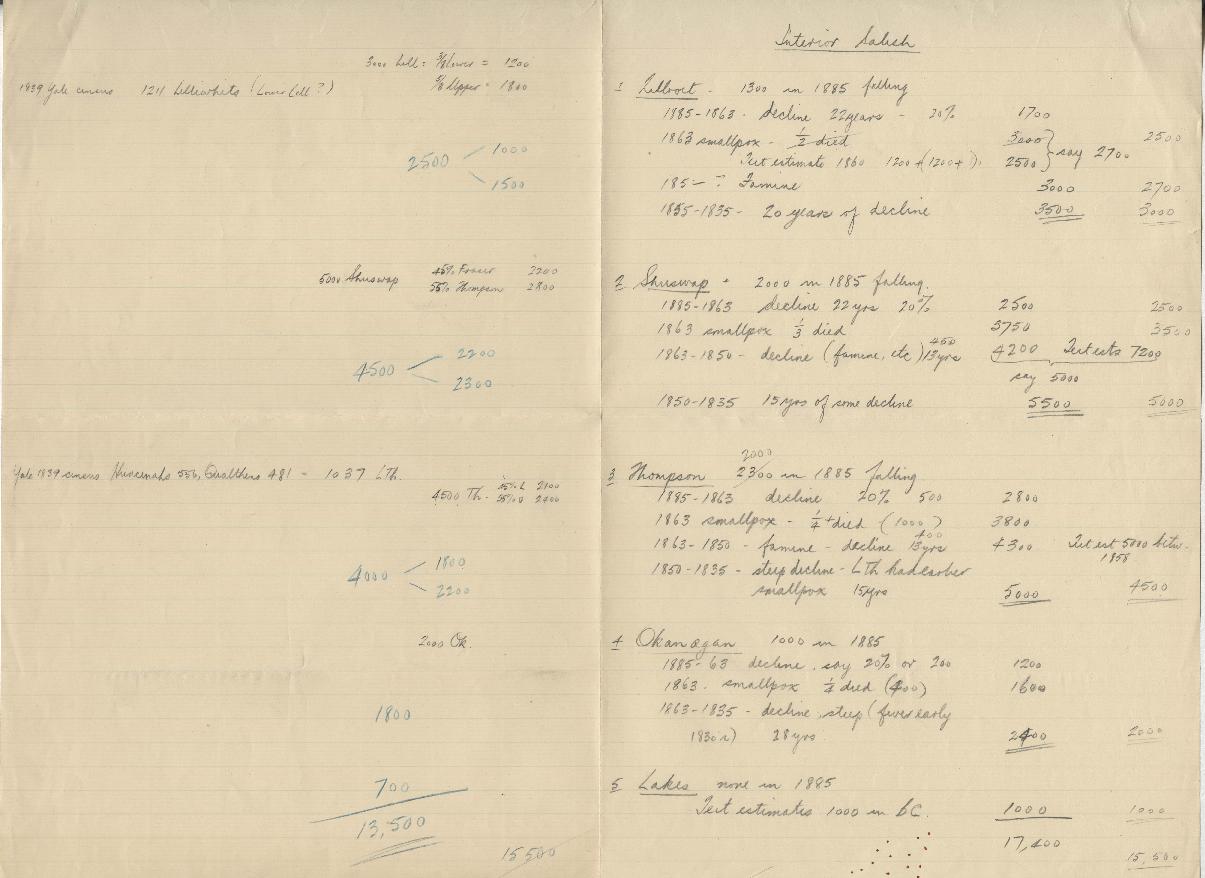 3000 Lill: 2/5 Lower = 1200
1839 Yale census 1211 Lilliwhits (Lower Lill?) 3/5 Upper = 1800
2500
1000
1500
5000 Shuswap 45% Fraser 2200
55% Thompson 2800
4500
2200
2300
Yale 1839 census 556, 481 = 1037 LTh.
4500 Th- 45% L 2100
55% U 2400
4000
1800
2200
2000 Ok.
1800
700
13,500
15 500
Interior Salish
1 Lillooet - 1300 in 1885 falling
1885-1863 - decline 22 years - 20% 1700
1863 smallpox - 1/2 died 3000 2500
Teit estimate 1860 1200 + (1200+?) 2500 say 2700
185- ? Famine 3000 2700
1855-1835 - 20 years of decline 3500 3000
2 Shuswap - 2000 in 1885 falling.
1885-1863 decline 22 yrs 20% 2500 2500
1863 smallpox 1/3 died 3750 3500
1863-1850 - decline (famine, etc) 13 yrs 450 4200 Teit ests 7200
say 5000
1850-1835 15 yrs of some decline 5500 5000
2000
3 Thompson 2300 in 1885 falling
1885-1863 decline 20% 500 2800
1863 smallpox - 1/4+ died (1000?) 3800
1863-1850 - famine - decline 13 yrs 400 4300 Teit est 5000 betw-
1858
1850-1835 - steep decline - LTh had earlier
smallpox 15 yrs 5000 4500
4 Okanagan 1000 in 1885
1885-63 decline, say 20% or 200 1200
1863. smallpox 1/4 died (400) 1600
1863-1835 - decline, steep (fever early
1830s) 28 yrs. 2400 2000
5 Lakes none in 1885
Teit estimates 1000 in BC. 1000 1000
17,400
15,500